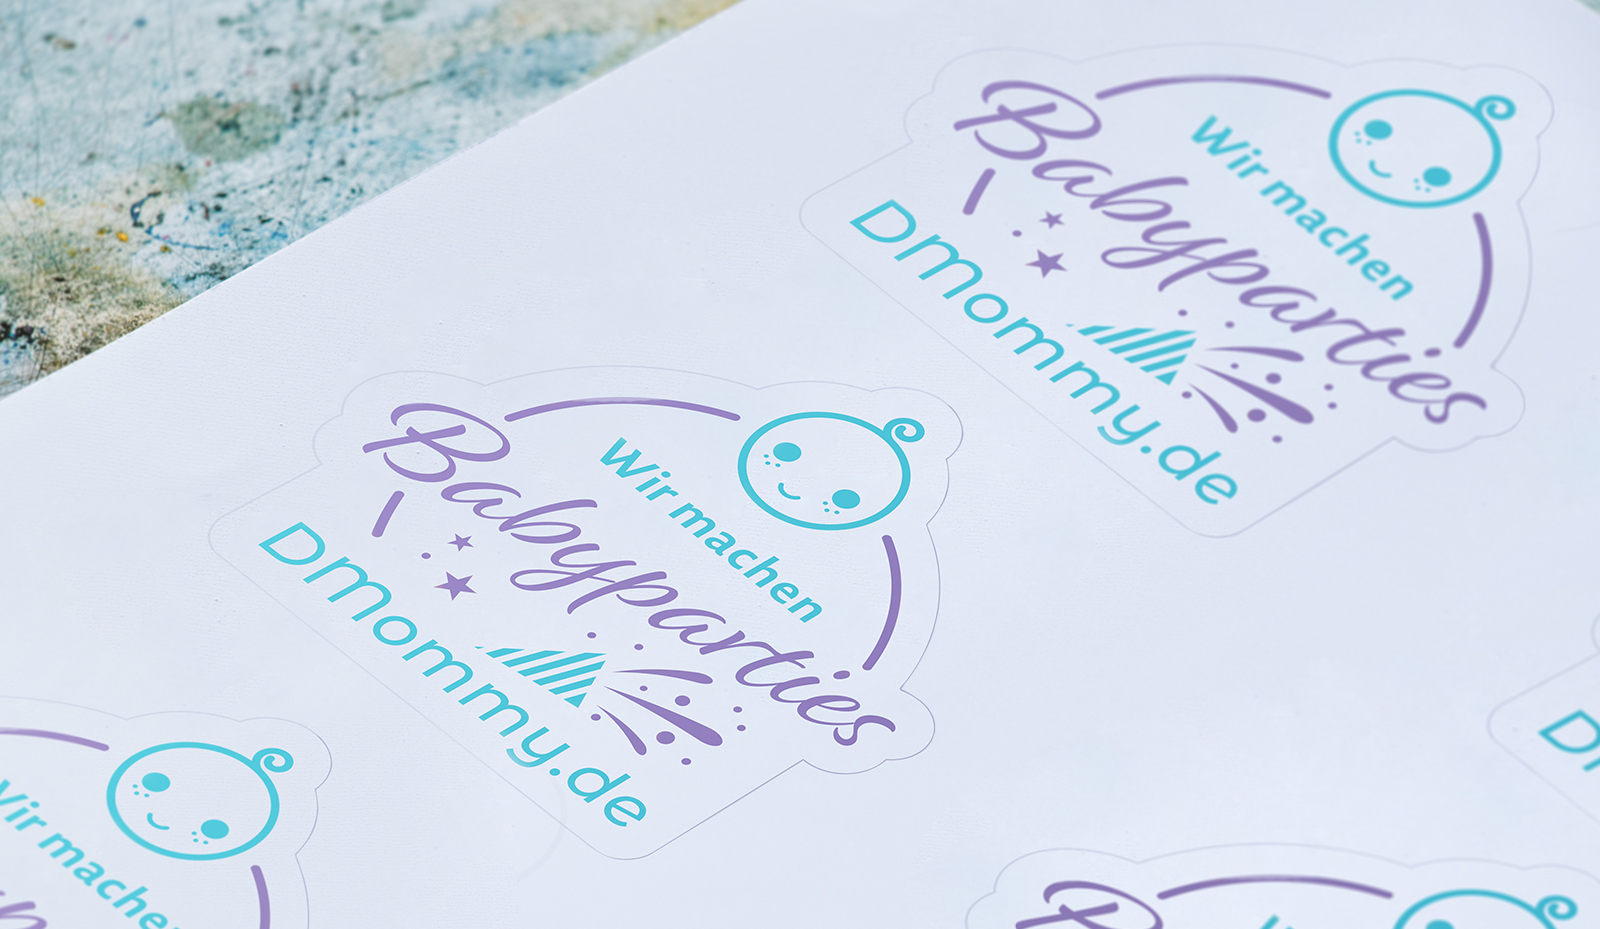 Wir machen
Babyparties
Dmommy.de
Wir machen
Babyparties
Dmommy.de
Wir machen